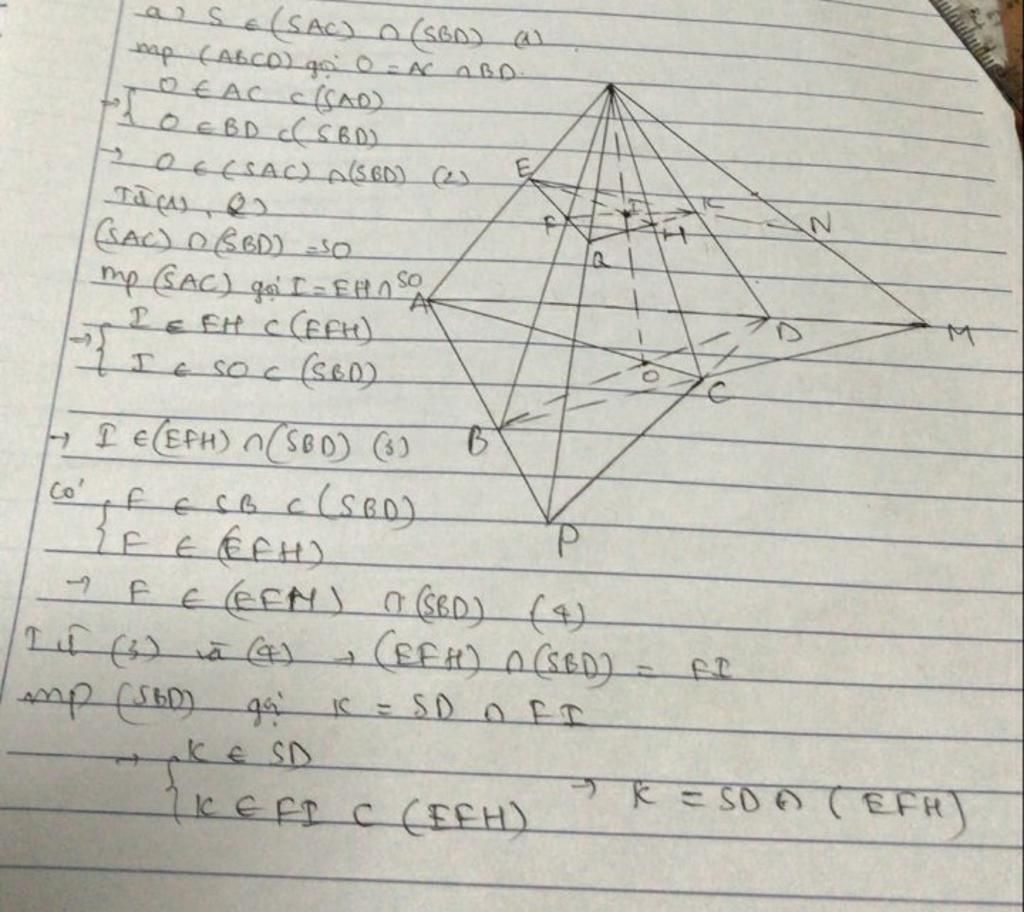 a) S ∈ (SAC) ∩ (SBD) (1)
mp (ABCD) gọi O = AC ∩ BD
→ { O ∈ AC ⊂ (SAD)
O ∈ BD ⊂ (SBD)
→ O ∈ (SAC) ∩ (SBD) (2)
Từ (1), (2)
(SAC) ∩ (SBD) = SO
mp (SAC) gọi I = EH ∩ SO
→ { I ∈ EH ⊂ (EFH)
I ∈ SO ⊂ (SBD)
→ I ∈ (EFH) ∩ (SBD) (3)
Có { F ∈ SB ⊂ (SBD)
F ∈ (EFH)
→ F ∈ (EFH) ∩ (SBD) (4)
Từ (3) và (4) → (EFH) ∩ (SBD) = FI
mp (SBD) gọi K = SD ∩ FI
→ { K ∈ SD
K ∈ FI ⊂ (EFH) → K = SD ∩ (EFH)
E
F
I
K
H
Q
N
A
D
M
O
C
B
P